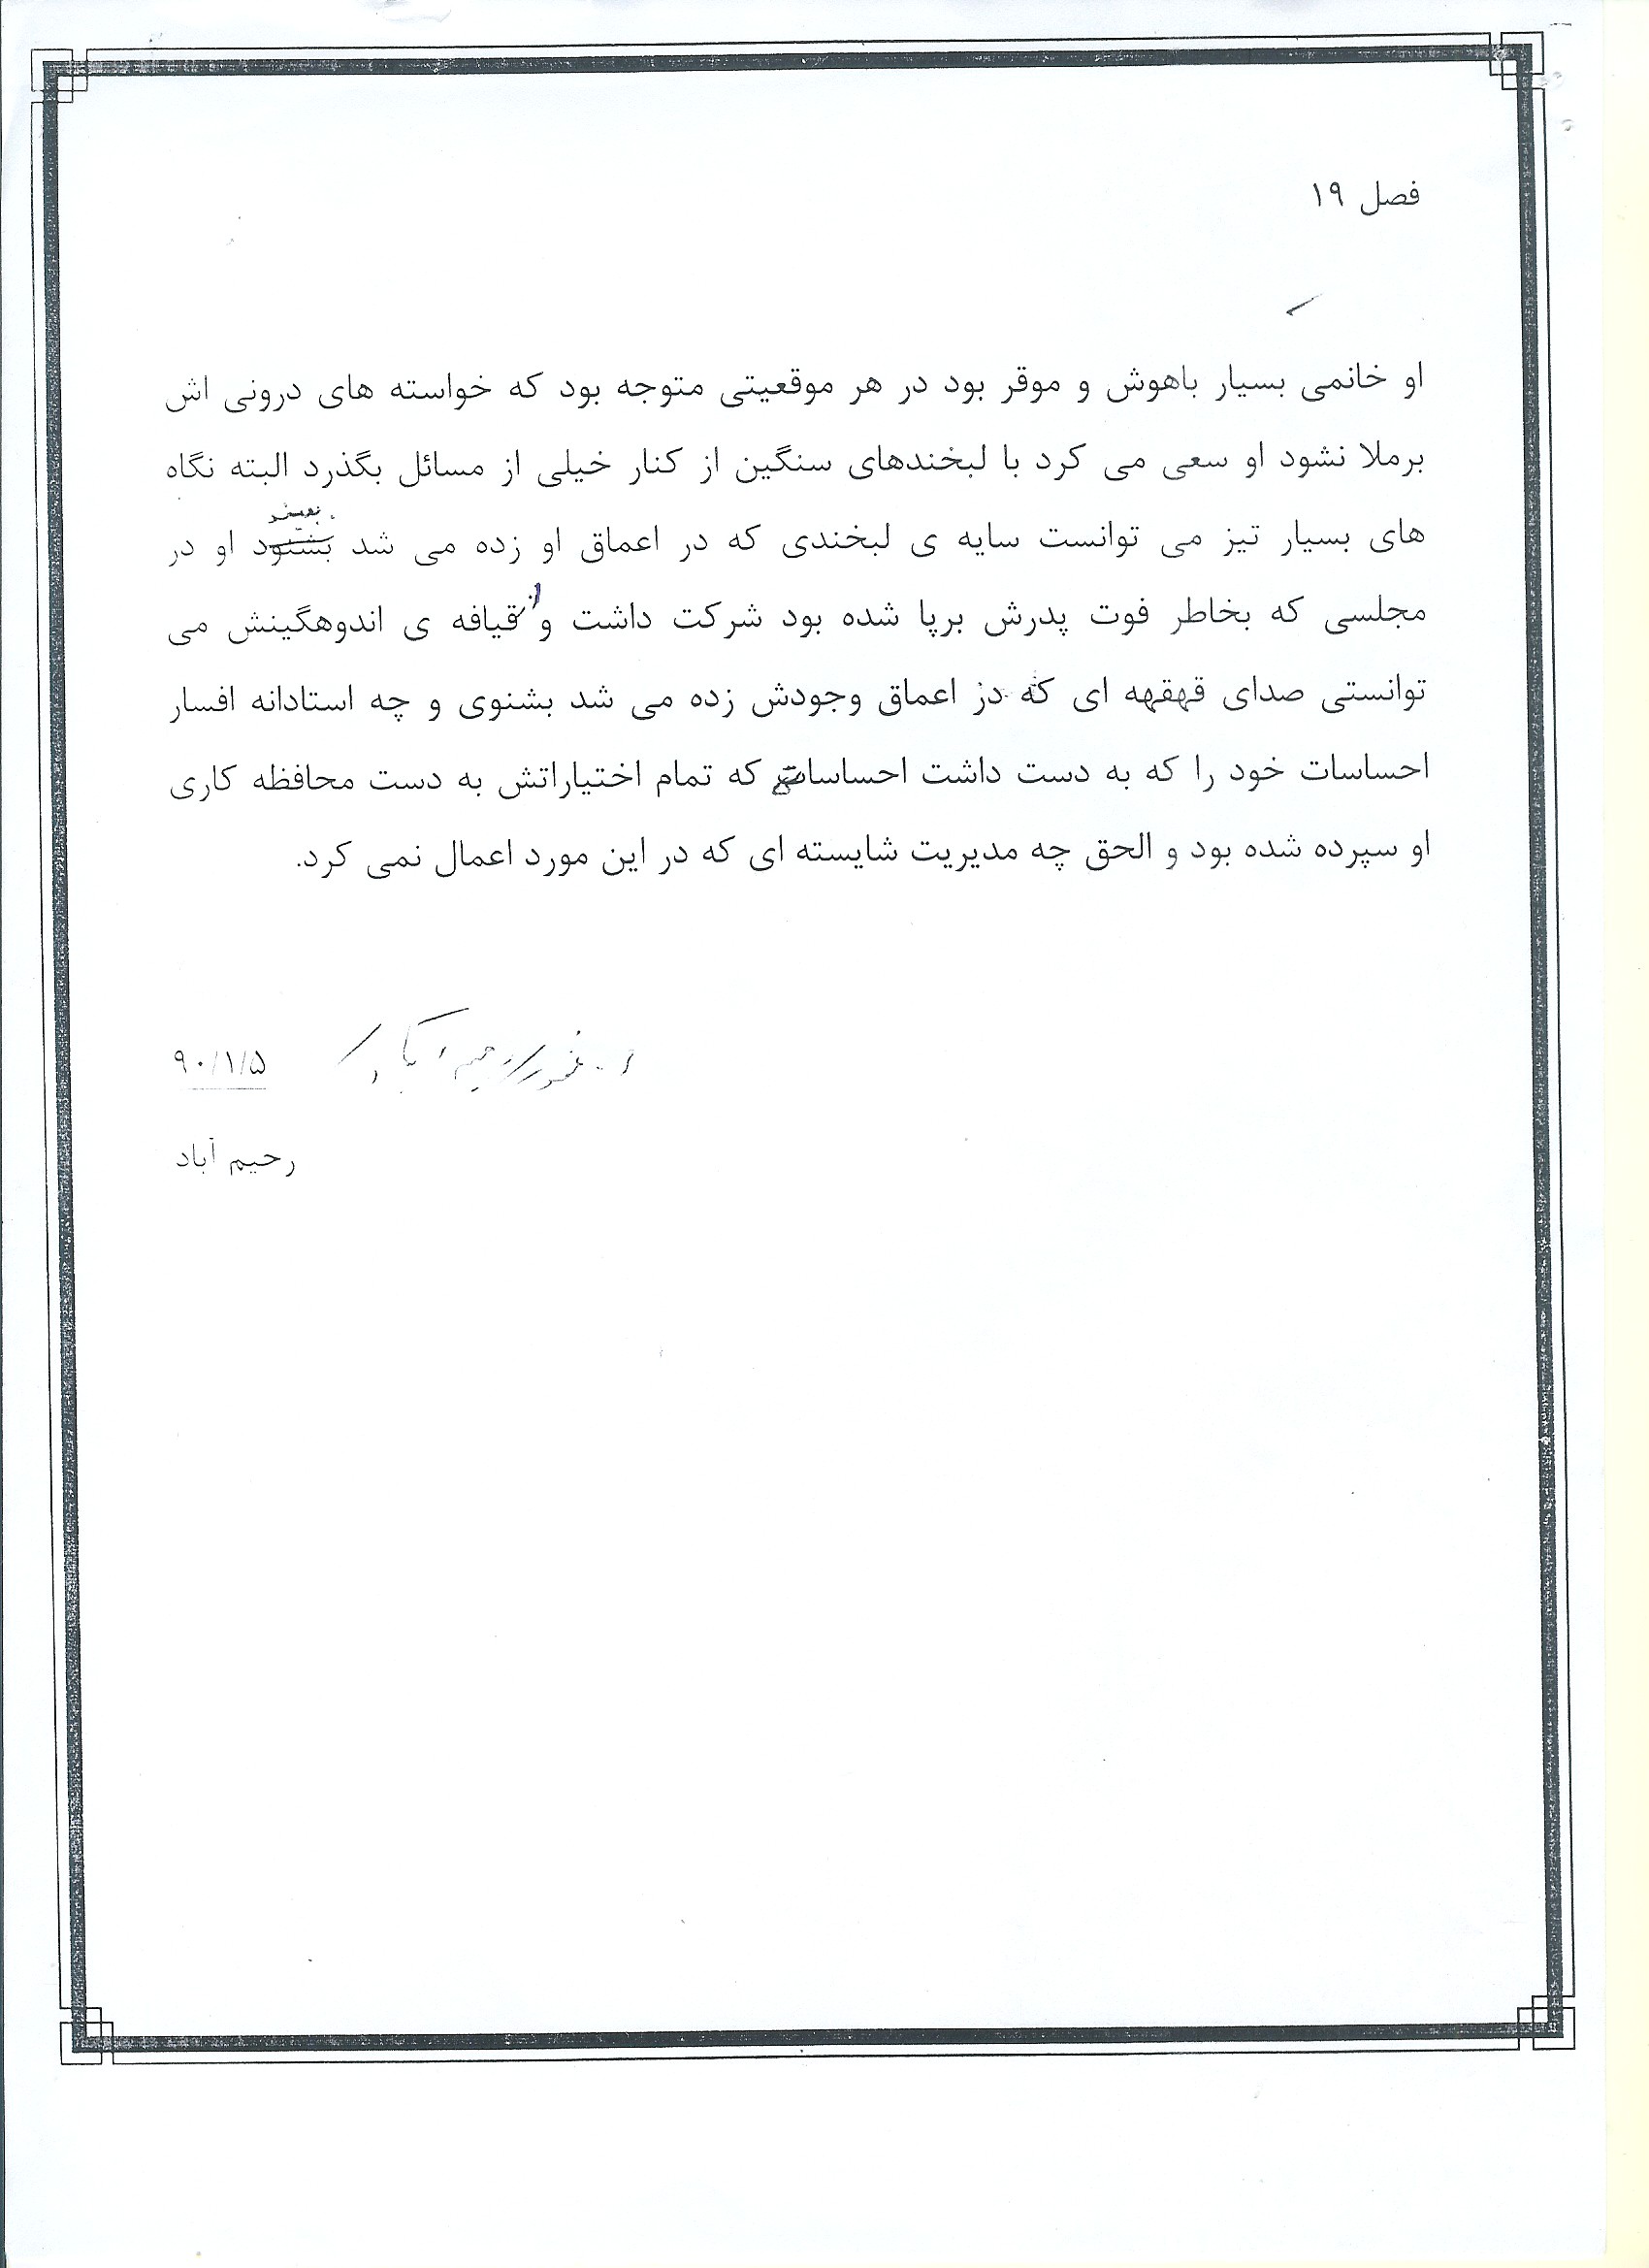 فصل ۱۹
او خانمی بسیار باهوش و موقر بود در هر موقعیتی متوجه بود که خواسته های درونی اش
برملا نشود او سعی می کرد با لبخندهای سنگین از کنار خیلی از مسائل بگذرد البته نگاه
ببیند
های بسیار تیز می توانست سایه ی لبخندی که در اعماق او زده می شد بشنود او در
مجلسی که بخاطر فوت پدرش برپا شده بود شرکت داشت و از قیافه ی اندوهگینش می
توانستی صدای قهقهه ای که در اعماق وجودش زده می شد بشنوی و چه استادانه افسار
احساسات خود را که به دست داشت احساسات که تمام اختیاراتش به دست محافظه کاری
او سپرده شده بود و الحق چه مدیریت شایسته ای که در این مورد اعمال نمی کرد.
۹۰/۱/۵
رحیم آباد